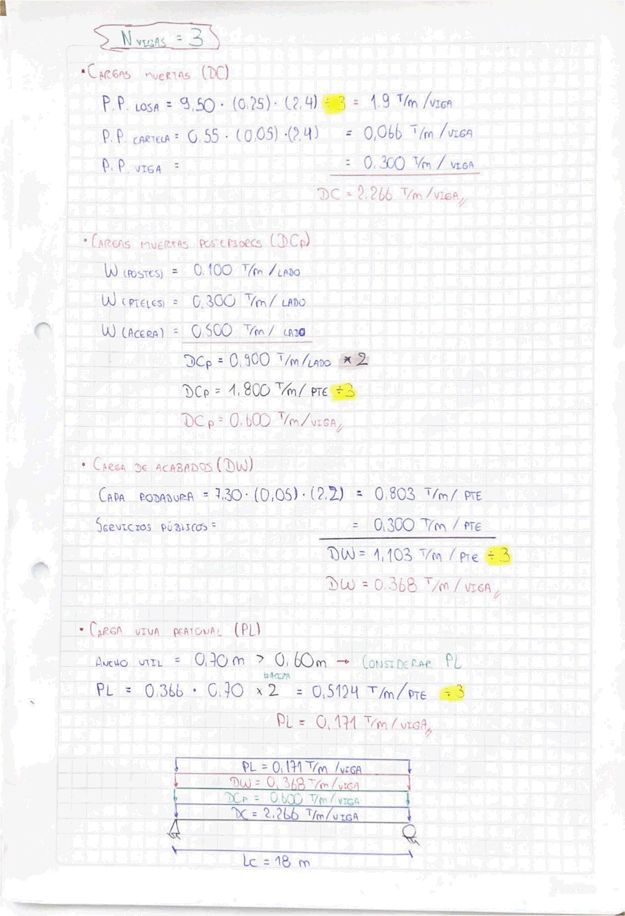 NVIGAS = 3
• CARGAS MUERTAS (DC)
P.P. LOSA = 9,50 · (0,25) · (2,4) ÷ 3 = 1.9 T/m/VIGA
P.P. CARTELA = 0.55 · (0,05) · (2.4) = 0,066 T/m/VIGA
P.P. VIGA = = 0.300 T/m/VIGA
DC = 2,266 T/m/VIGA//
• CARGAS MUERTAS POSTERIORES (DCp)
W (POSTES) = 0.100 T/m/LADO
W (PTELES) = 0.300 T/m/LADO
W (ACERA) = 0,500 T/m/LADO
DCp = 0,900 T/m/LADO * 2
DCp = 1,800 T/m/PTE ÷3
DCp = 0,600 T/m/VIGA//
• CARGA DE ACABADOS (DW)
CAPA RODADURA = 7.30 · (0,05) · (2.2) = 0.803 T/m/PTE
SERVICIOS PÚBLICOS = = 0,300 T/m/PTE
DW = 1,103 T/m/PTE ÷3
DW = 0.368 T/m/VIGA//
• CARGA VIVA PEATONAL (PL)
ANCHO UTIL = 0,70m > 0,60m → CONSIDERAR PL
PL = 0.366 · 0,70 x 2 = 0,5124 T/m/PTE ÷3
PL = 0,171 T/m/VIGA//
PL = 0,171 T/m/VIGA
DW = 0,368 T/m/VIGA
DCp = 0,600 T/m/VIGA
DC = 2.266 T/m/VIGA
Lc = 18 m